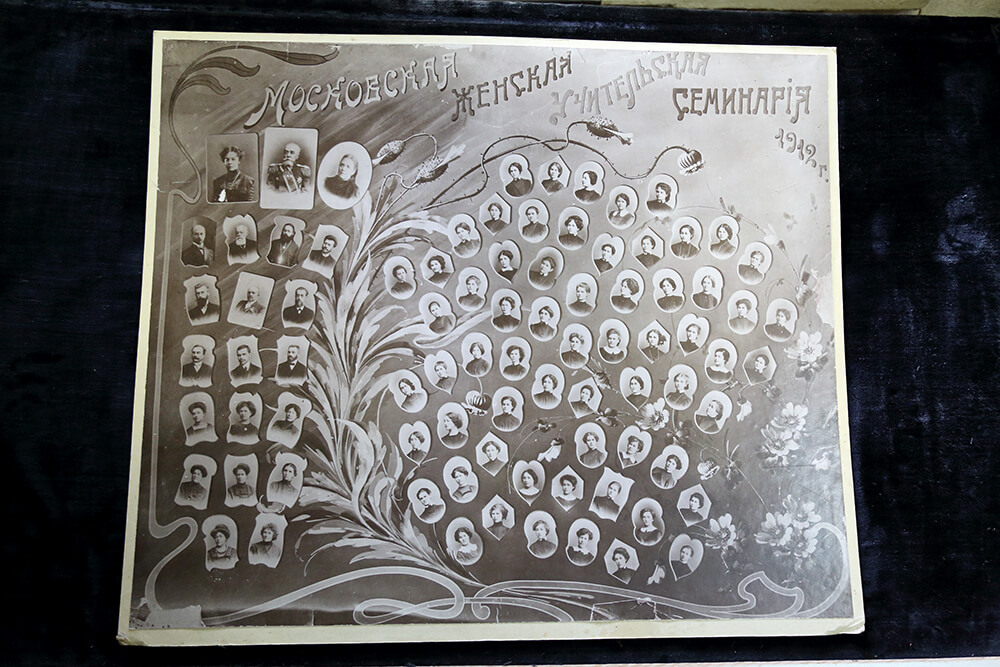 МОСКОВСКАЯ ЖЕНСКАЯ УЧИТЕЛЬСКАЯ СЕМИНАРІЯ
1912 г.